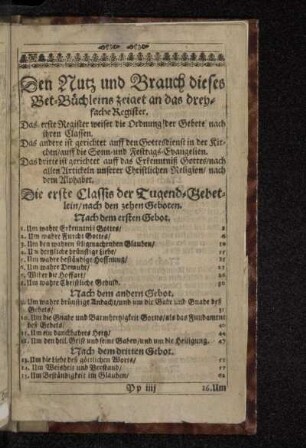 Den Nutz und Brauch dieses
Bet-Büchleins zeiget an das drey-
fache Register.
Das erste Register weiset die Ordnung der Gebete nach
ihren Classen.
Das andere ist gerichtet auff den Gottesdienst in der Kir-
chen/auff die Sonn- und Festtags-Evangelien.
Das dritte ist gerichtet auff das Erkenntniß Gottes/nach
allen Articteln unserer Christlichen Religion/nach
dem Alphabet.
Die erste Classis der Tugend-Gebet-
lein/nach den zehen Geboten.
Nach dem ersten Gebot.
1. Um wahre Erkenntniß Gottes/
2. Um wahre Furcht Gottes/
3. Um den wahren seligmachenden Glauben/
4. Um hertzliche brünstige Liebe/
5. Um wahre beständige Hoffnung/
6. Um wahre Demuth/
7. Wider die Hoffart/
8. Um wahre Christliche Gedult.
Nach dem andern Gebot.
9. Um wahre brünstige Andacht/und um die Gabe und Gnade des
Gebets/
10. Um die Gnade und Barmhertzigkeit Gottes/als das Fundament
des Gebets/
11. Um ein danckbahres Hertz/
12. Um den heil. Geist und seine Gaben/und um die Heiligung.
Nach dem dritten Gebot.
13. Um die Liebe des göttlichen Worts/
14. Um Weißheit und Verstand/
15. Um Beständigkeit im Glauben/
Pp iiij 16. Um